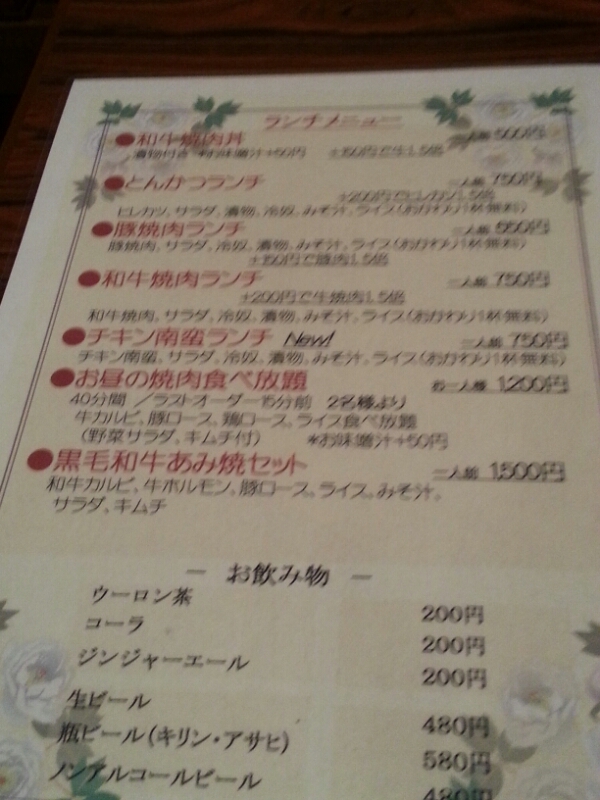 ランチメニュー
●和牛焼肉丼 一人前 500円
漬物付き *お味噌汁+50円 +150円で牛1.5倍
●とんかつランチ 一人前 750円
+200円でヒレカツ1.5倍
ヒレカツ、サラダ、漬物、冷奴、みそ汁、ライス(おかわり1杯無料)
●豚焼肉ランチ 一人前 650円
豚焼肉、サラダ、冷奴、漬物、みそ汁、ライス(おかわり1杯無料)
+150円で豚肉1.5倍
●和牛焼肉ランチ 一人前 750円
+200円で牛焼肉1.5倍
和牛焼肉、サラダ、冷奴、漬物、みそ汁、ライス(おかわり1杯無料)
●チキン南蛮ランチ New! 一人前 750円
チキン南蛮、サラダ、冷奴、漬物、みそ汁、ライス(おかわり1杯無料)
●お昼の焼肉食べ放題 お一人様 1,200円
40分間 /ラストオーダー15分前 2名様より
牛カルビ、豚ロース、鶏ロース、ライス食べ放題
(野菜サラダ、キムチ付) *お味噌汁+50円
●黒毛和牛あみ焼セット 一人前 1,500円
和牛カルビ、牛ホルモン、豚ロース、ライス、みそ汁、
サラダ、キムチ
― お飲み物 ―
ウーロン茶 200円
コーラ 200円
ジンジャーエール 200円
生ビール 480円
瓶ビール(キリン・アサヒ) 580円
ノンアルコールビール 480円